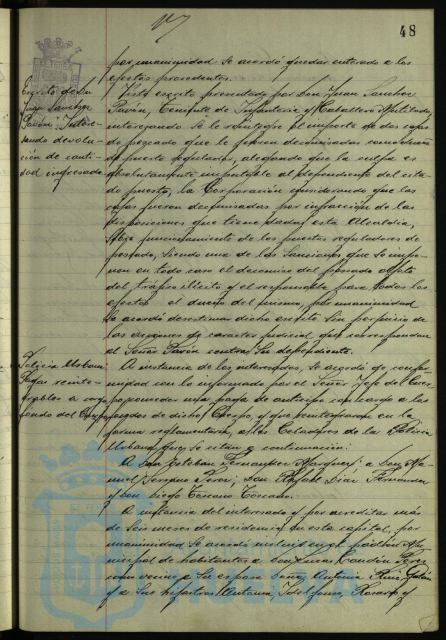 48
por unanimidad se acordó quedar enterado a los
efectos procedentes.
Escrito de Dn
Juan Sanchez
Pavón, Intere-
sando devolu-
ción de canti-
dad ingresada
Visto escrito presentado por Don Juan Sanchez
Pavón, Teniente de Infantería y Caballero Mutilado
interesando se le reintegre el importe de dos cajas
de pescado que le fueron decomisadas como dueño
de puesto regulador, alegando que la culpa es
absolutamente imputable al dependiente del cita-
do puesto, la Corporación considerando que las
cajas fueron decomisadas por infracción de las
disposiciones que tiene dadas esta Alcaldía,
funcionamiento de los puestos reguladores de
pescado, siendo una de las sanciones que se impo-
nen en todo caso el decomiso del pescado objeto
del tráfico ilícito y el responsable para todos los
efectos el dueño del mismo, por unanimidad
se acordó desestimar dicho escrito sin perjuicio de
las acciones de caracter judicial que correspondan
al Señor Pavón contra su dependiente.
Policia Urbana
Pagas reinte-
grables a cargo
fondo del Cuerpo
A instancia de los interesados, se acordó de confor-
midad con lo informado por el Señor Jefe de Cuer-
po, conceder una paga de anticipo con cargo a los
fondos de dicho Cuerpo, y que reintegraran en la
forma reglamentaria, a los Celadores de la Policia
Urbana que se citan a continuación:
A Don Esteban Fernandez Marquez; a Don Ma-
nuel Perez; Don Rafael Diaz Fernandez
y Don Diego Toscano Toscano.
A instancia del interesado y por acreditar más
de seis meses de residencia en esta capital, por
unanimidad se acordó incluir en el padrón Mu-
nicipal de habitantes a Don Lucas Rendón Perez
como vecino a su esposa Doña Antonia Ruiz
y a sus hijastros Antonia, Idelfonso, Rosario y